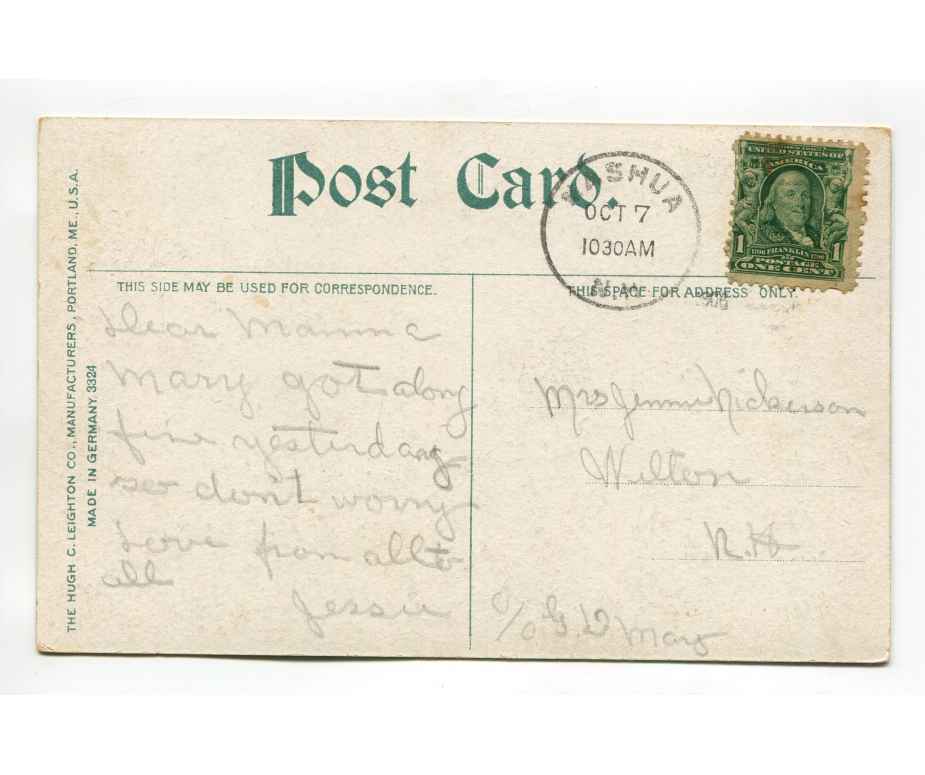 Post Card.
NASHUA
OCT 7
1030AM
N.H.
UNITED STATES OF
AMERICA
1
1706 FRANKLIN 1790
1
POSTAGE
ONE CENT
THIS SIDE MAY BE USED FOR CORRESPONDENCE.
THIS SPACE FOR ADDRESS ONLY.
Dear Mamma
Mary got along
fine yesterday
so don't worry
Love from all to
all
Jessie
Mrs Jennie Nickerson
Wilton
N.H
c/o G D May
THE HUGH C. LEIGHTON CO., MANUFACTURERS, PORTLAND, ME., U.S.A.
MADE IN GERMANY. 3324